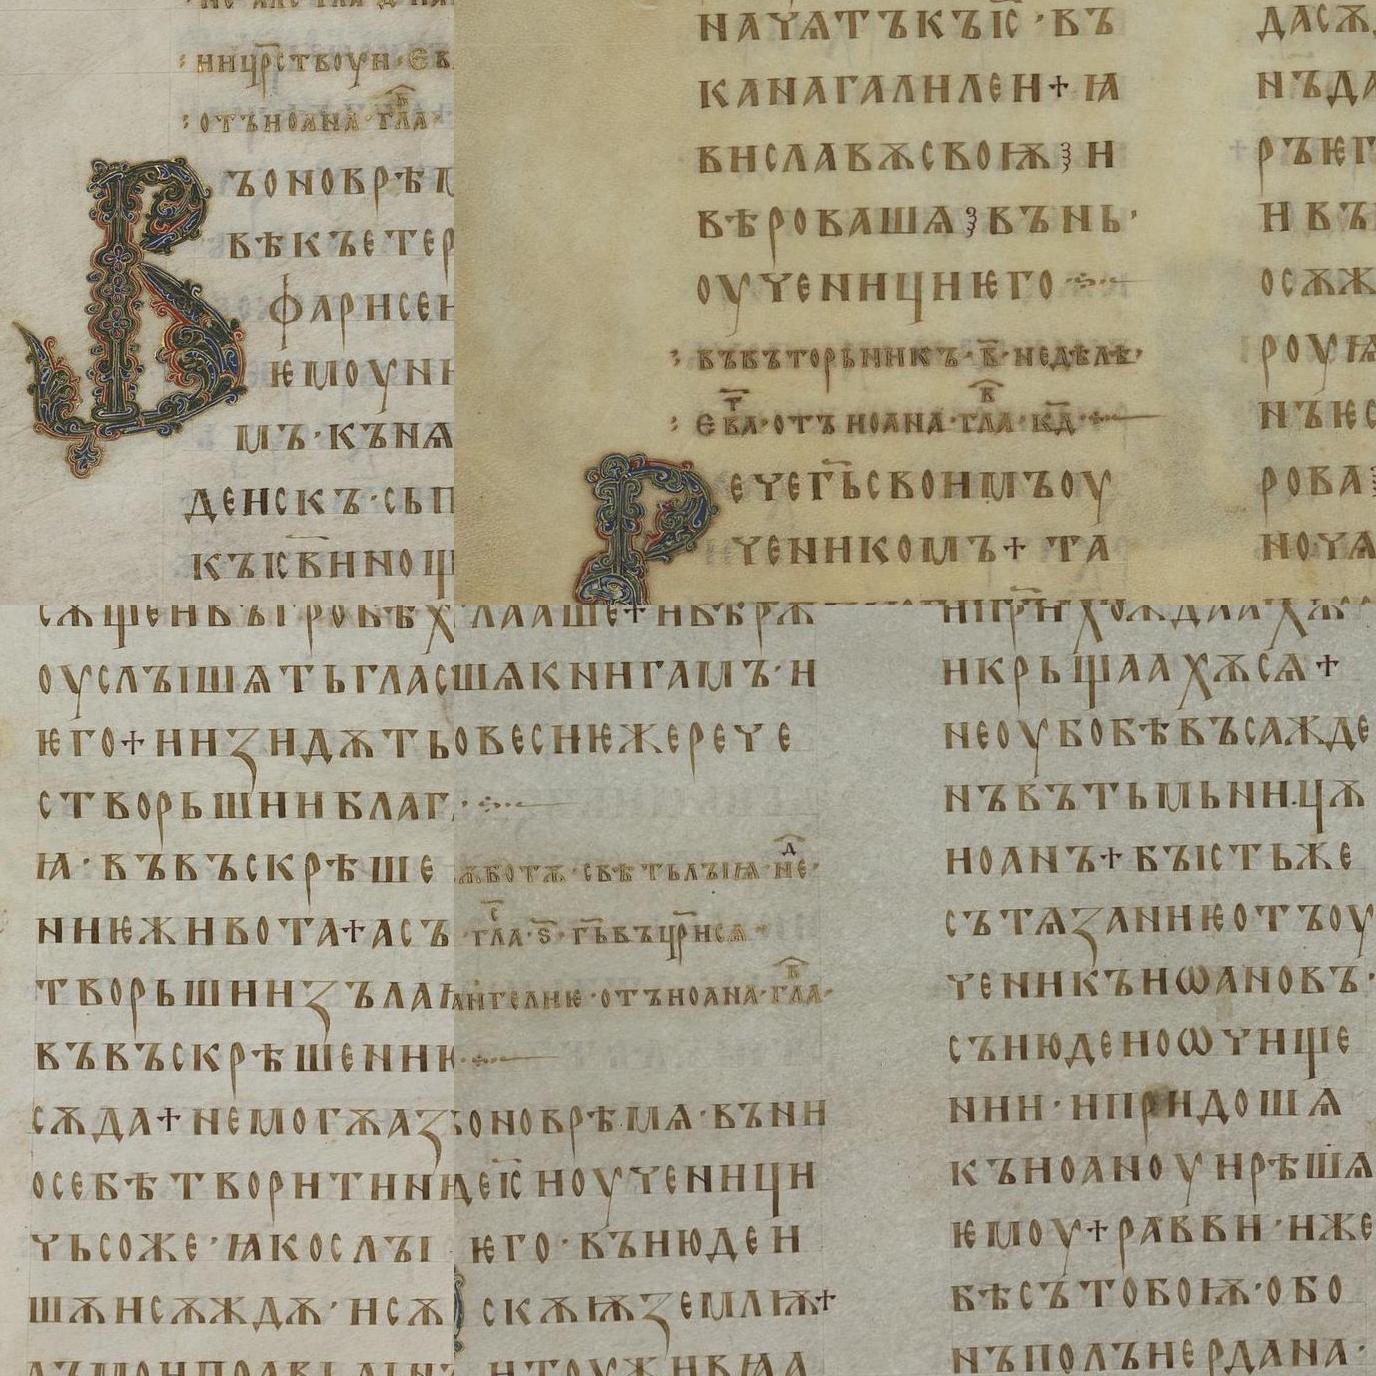 ниц҃рствоун · Єв
отъ иоана · гл҃а ·
Въ оно врѣ
вѣкъ етер
фарисеі
ѥмоу ни
мъ · кънѧ
деискъ · сь п
къ іс҃ви нощ
наѹѧтъкъ іс҃ · въ
кана галилеи + ꙗ
ви славѫ своѭ ꙁ и
вѣровашѧ ꙁ въ нь ·
оуѹеници ѥго
въ въторьникъ · в҃ · недѣлѣ ·
Єв҃а · отъ иоана · гл҃а · кд҃ ·
Реѹе г҃ь своимъ оу
ѹеникомъ + та
дасѧ
нъ да
ръ ѥг
и въ
осѫж
роуѭ
нъ ѥс
рова
ноѹѧ
сѧщеи въ гробѣх
оуслъішѧть глас
ѥго + и изидѫть
створьшии благ
ꙗ · въ въскрѣше
ниѥ живота + а съ
творьшии зълаꙗ
въ въскрѣшениѥ
сѫда + не могѫ аз
о себѣ творити ни
ѹьсоже · ꙗко слъі
шѫ и сѫждѫ · и сѫ
лааше + и вѣрѫ
шѧ книгамъ · и
овеси ѥже реѹе
ѫботѫ · свѣтълъіѩ не҃д ·
гл҃а · ѕ҃ · г҃ь въц҃рисѧ
ангелиѥ · отъ иоана · гл҃а ·
оно врѣмѧ · въ ни
де іс҃ и оуѹеници
ѥго · въ июдеи
скѫѭ землѭ +
и тоу живꙗа
и пр҃ихождаахѫ
и крьщаахѫсѧ +
не оу бо бѣ въсажде
нъ въ тьмьницѫ
иоанъ + бъість же
сътѧзаниѥ отъ оу
ѹеникъ иѡановъ ·
съ июдеи о ѡѹище
нии · и придошѧ
къ иоаноу и рѣшѧ
ѥмоу + равви · иже
бѣ съ тобоѭ · об о
нъ полъ иердана ·